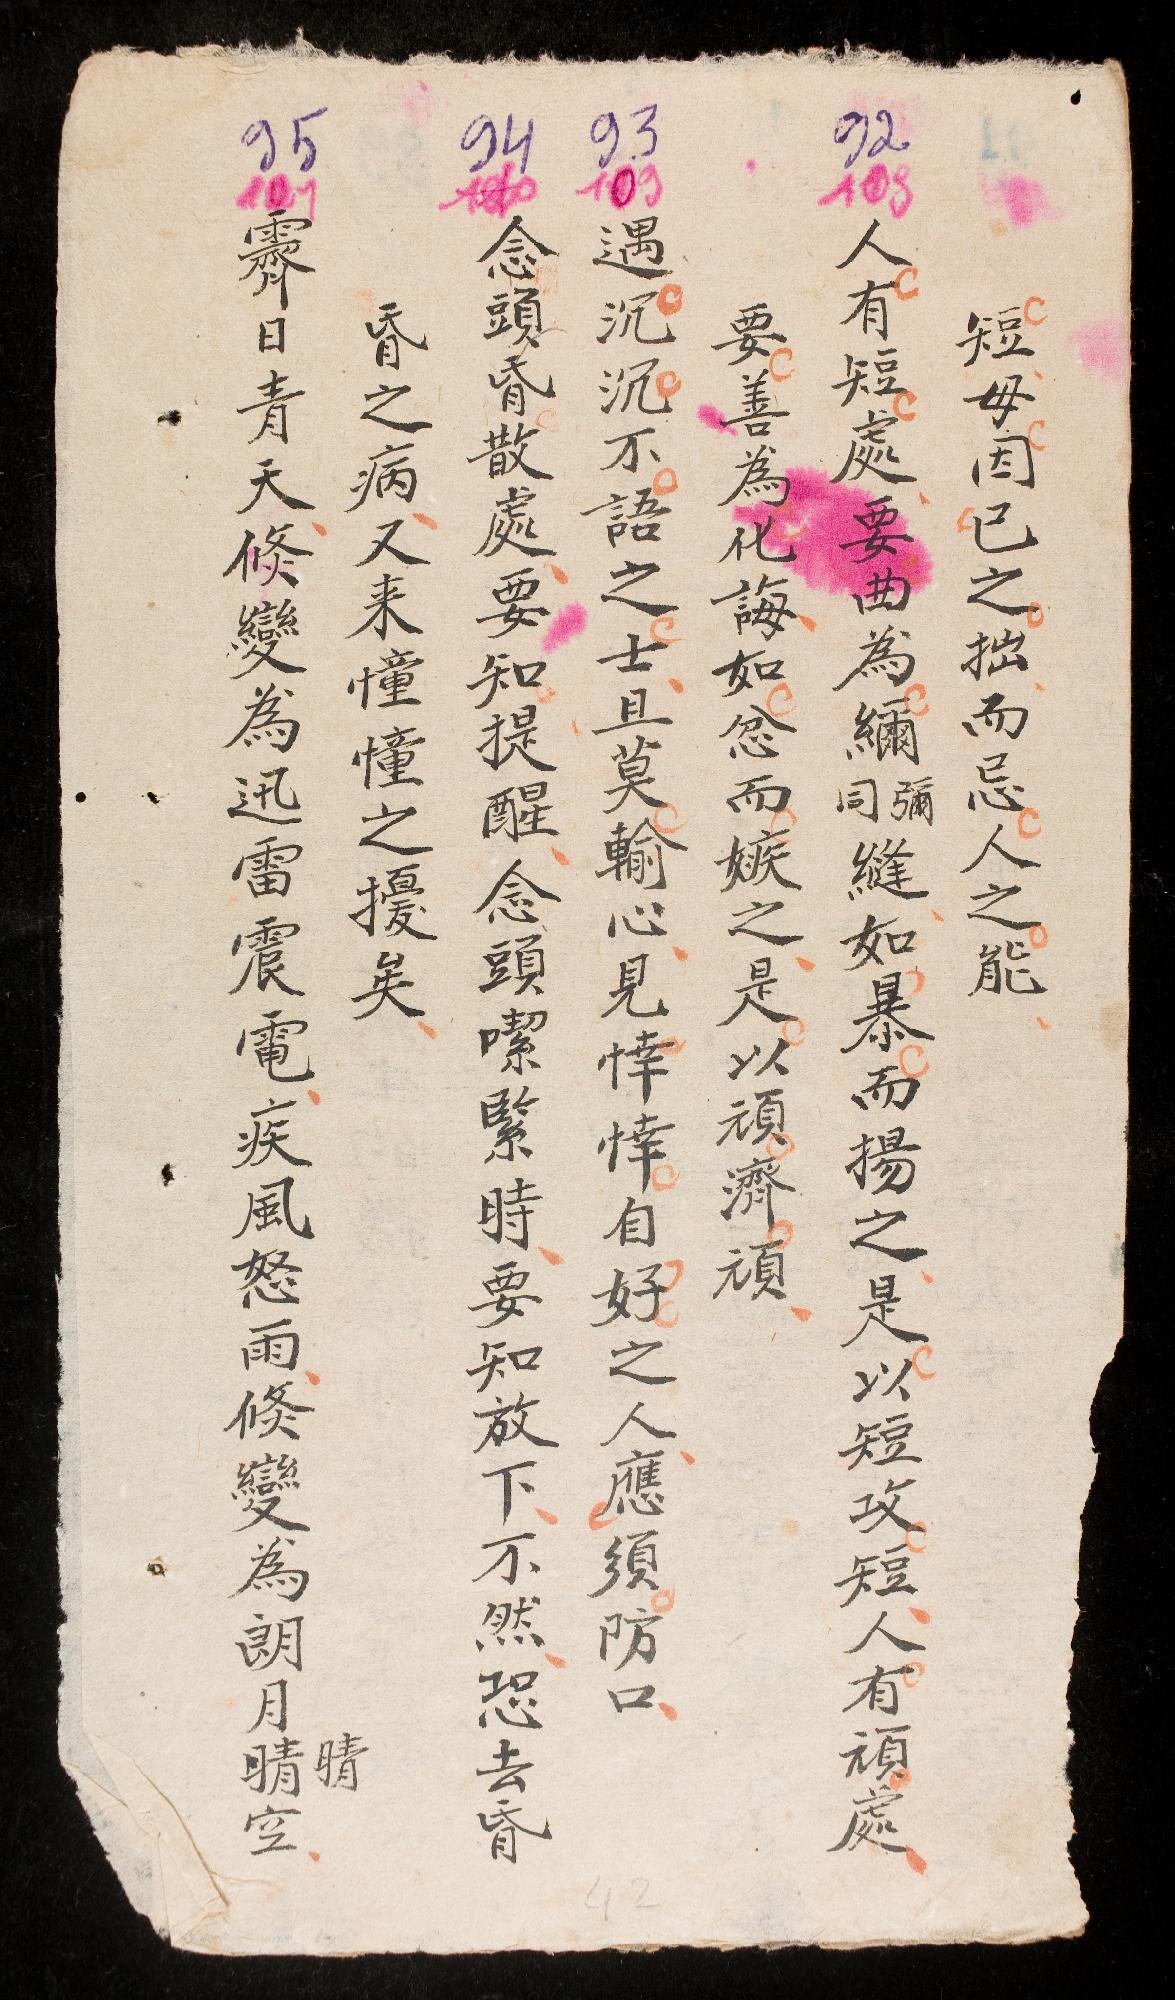 短毋因己之拙而忌人之能
92
108
人有短處要曲為纟彌彌同縫如暴而揚之是以短攻短人有頑處
要善為化誨如忿而嫉之是以頑濟頑
93
109
遇沉沉不語之士且莫輸心見悻悻自好之人應須防口
94
念頭昏散處要知提醒念頭喫緊時要知放下不然恐去昏
昏之病又来憧憧之擾矣
95
霽日青天倐變為迅雷震電疾風怒雨倐變為朗月晴空
晴
42